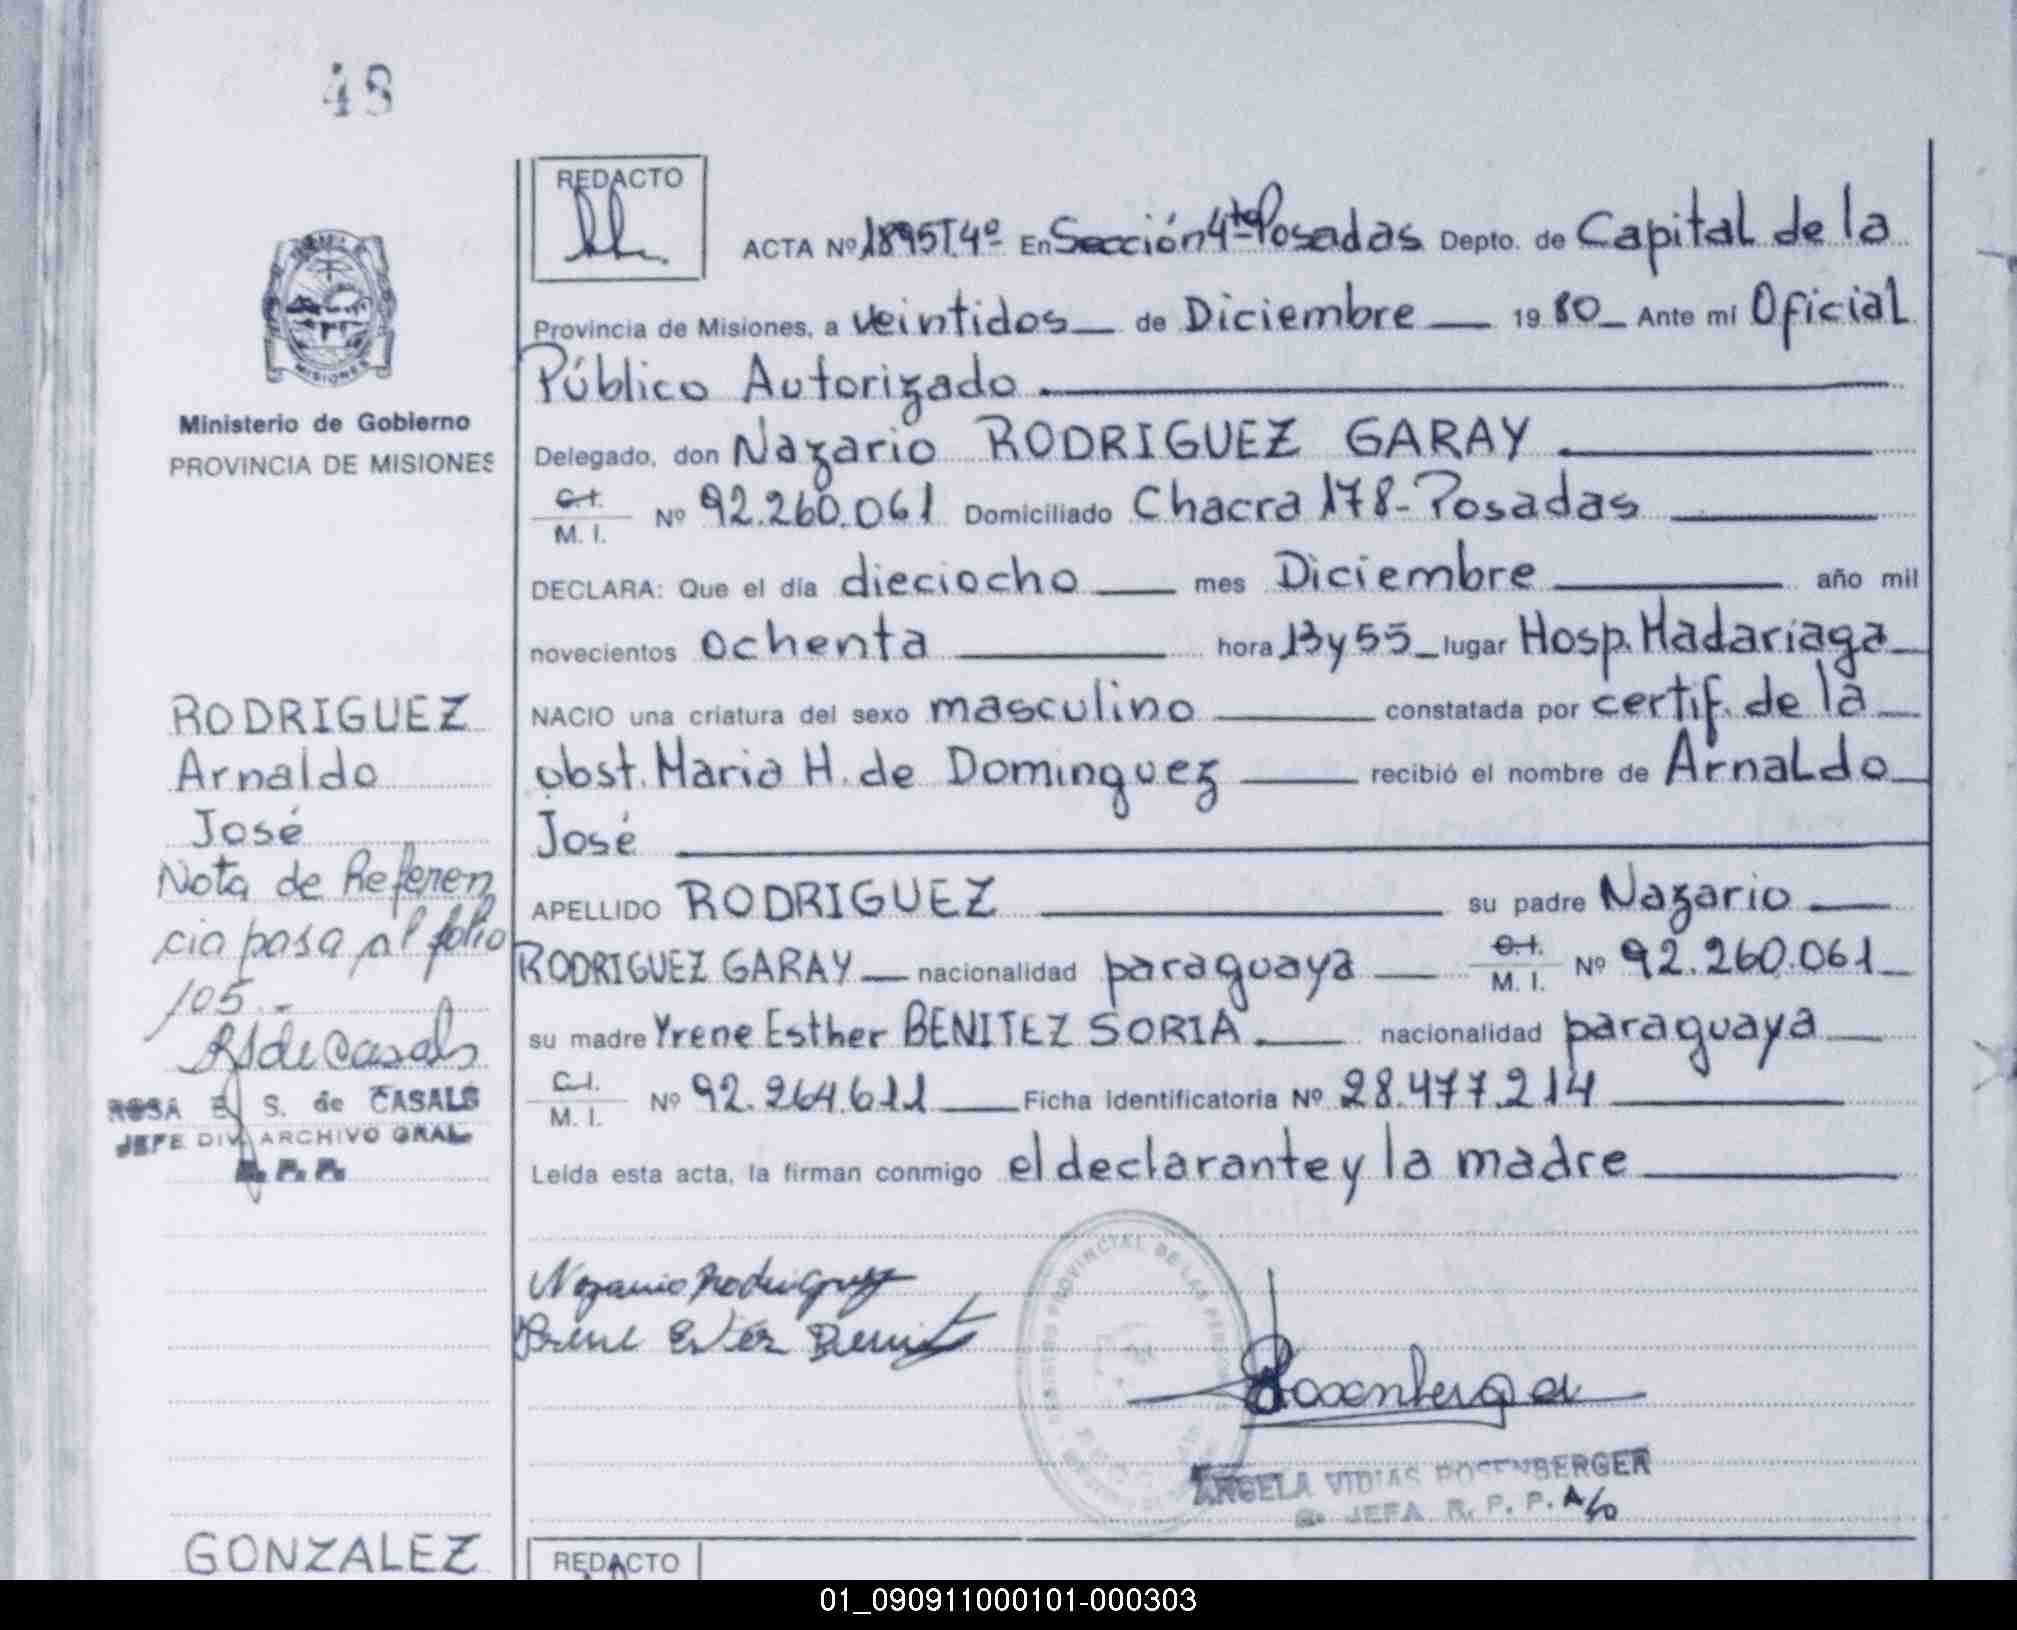 48
REDACTO
ACTA Nº 1895T.4º En Sección 4ta Posadas Depto. de Capital de la
Provincia de Misiones, a veintidos de Diciembre 1980 Ante mí Oficial
Público Autorizado
Ministerio de Gobierno
PROVINCIA DE MISIONES
MISIONES
Delegado, don Nazario RODRIGUEZ GARAY
C.I. M. I. Nº 92.260.061 Domiciliado Chacra 178-Posadas
DECLARA: Que el día dieciocho mes Diciembre año mil
novecientos ochenta hora 13 y 55 lugar Hosp. Madariaga
NACIO una criatura del sexo masculino constatada por certif. de la
obst. Maria H. de Dominguez recibió el nombre de Arnaldo
José
APELLIDO RODRIGUEZ su padre Nazario
RODRIGUEZ GARAY nacionalidad paraguaya C.I. M. I. Nº 92.260.061
su madre Yrene Esther BENITEZ SORIA nacionalidad paraguaya
C.I. M. I. Nº 92.264.611 Ficha Identificatoria Nº 28.477.214
Leída esta acta, la firman conmigo el declarante y la madre
RODRIGUEZ
Arnaldo
José
Nota de Referen
cia pasa al folio
105.-
RSdeCasals
ROSA E. S. de CASALS
JEFE DIV. ARCHIVO GRAL.
R. P. P.
Nazario Rodriguez
Irene Ester Benitez
REGISTRO PROVINCIAL DE LAS PERSONAS
Rosenberger
ANGELA VIDIAS ROSENBERGER
JEFA R. P. P. A/c
GONZALEZ
REDACTO
01_090911000101-000303